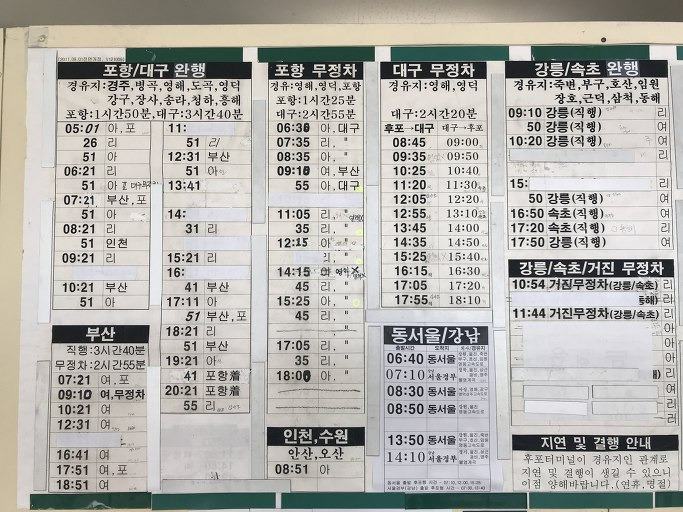 포항/대구 완행
경유지:경주,병곡,영해,도곡,영덕
강구,장사,송라,청하,흥해
포항:1시간50분,대구:3시간40분
05:01 아,포
26 리
51 아
06:21 리
51 아
07:21 부산,포
51 아
08:21 리
51 인천
09:21 리
10:21 부산
51 아
11:
51 리
12:31 부산
51 아
13:41
14:
31 리
15:21 리
16:
41 부산
17:11 아
51 부산,포
18:21 리
51 부산
19:21 아
41 포항着
20:21 포항着
55 리
부산
직행:3시간40분
무정차:2시간55분
07:21 여,포
09:10 여,무정차
10:21 여
12:31 여
16:41 여
17:51 여,포
18:51 여
포항 무정차
경유:영해,영덕,포항
포항:1시간25분
대구:2시간55분
06:30 아,대구
07:35 리,
08:35 아,
09:10 여,부산
55 아,대구
11:05 리, "
35 리, "
12:15 아, "
리, "
14:15
45 리, "
15:25 아, "
45 리, "
17:05 리, "
35 리, "
18:00 아, "
인천,수원
안산,오산
08:51 아
대구 무정차
경유지:영해,영덕
대구:2시간20분
후포→대구 대구→후포
08:45 09:00
09:35 09:50
10:25 10:40
11:20 11:30
12:05 12:20
12:55 13:10
13:45 14:00
14:35 14:50
15:25 15:40
16:15 16:30
17:05 17:20
17:55 18:10
동서울/강남
06:40 동서울
07:10 서울경부
08:30 동서울
08:50 동서울
13:50 동서울
14:10 서울경부
강릉/속초 완행
경유지:죽변,부구,호산,임원
장호,근덕,삼척,동해
09:10 강릉(직행) 리
50 강릉(직행) 여
10:20 강릉(직행) 여
리
15: 리
50 강릉(직행) 여
16:50 속초(직행) 여
17:20 속초(직행) 리
17:50 강릉(직행) 여
강릉/속초/거진 무정차
10:54 거진무정차(강릉/속초) 리
동해) 리
11:44 거진무정차(강릉/속초) 리
지연 및 결행 안내
후포터미널이 경유지인 관계로
지연 및 결행이 생길 수 있으니
이점 양해바랍니다.(연휴,명절)